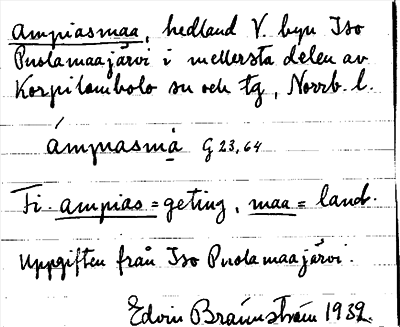 Ampiasmaa, hedland V. byn Iso
Puolamaajärvi i mellersta delen av
Korpilombolo sn och tg, Norrb. l.
ámpɪasmā̱ G 23,64
Fi. ampias = geting, maa = land.
Uppgiften från Iso Puolamaajärvi.
Edvin Brännström 1932.